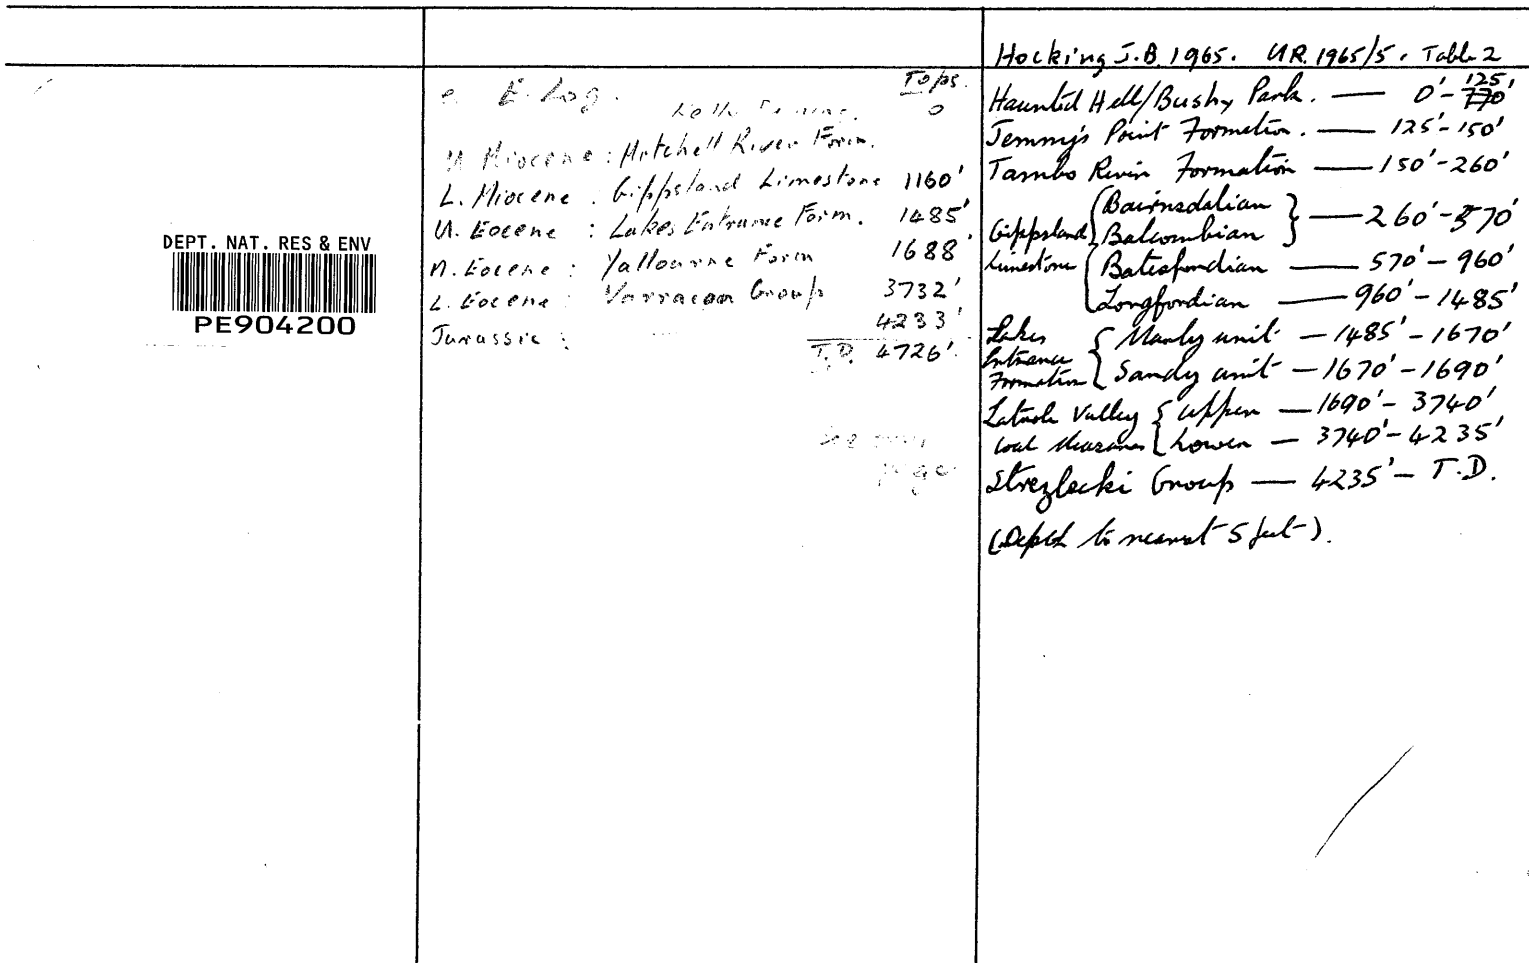 DEPT. NAT. RES & ENV
PE904200
E. Log. Tops.
0
M. Miocene : Mitchell River Form.
L. Miocene : Gippsland Limestone 1160'
U. Eocene : Lakes Entrance Form. 1485'
M. Eocene : Yallourne Form 1688'
L. Eocene : Yarracan Group 3732'
Jurassic : 4233'
T.D. 4726'
See over
page
Hocking J.B. 1965. UR. 1965/5. Table 2
Haunted Hill/Bushy Park. — 0' - 125'
Jemmy's Point Formation. — 125' - 150'
Tambo River Formation — 150' - 260'
Gippsland Limestone { Bairnsdalian
Balcombian } — 260' - 570'
Batesfordian — 570' - 960'
Longfordian — 960' - 1485'
Lakes Entrance Formation { Marly unit — 1485' - 1670'
Sandy unit — 1670' - 1690'
Latrobe Valley Coal Measures { Upper — 1690' - 3740'
Lower — 3740' - 4235'
Strezlecki Group — 4235' - T.D.
(Depth to nearest 5 feet).